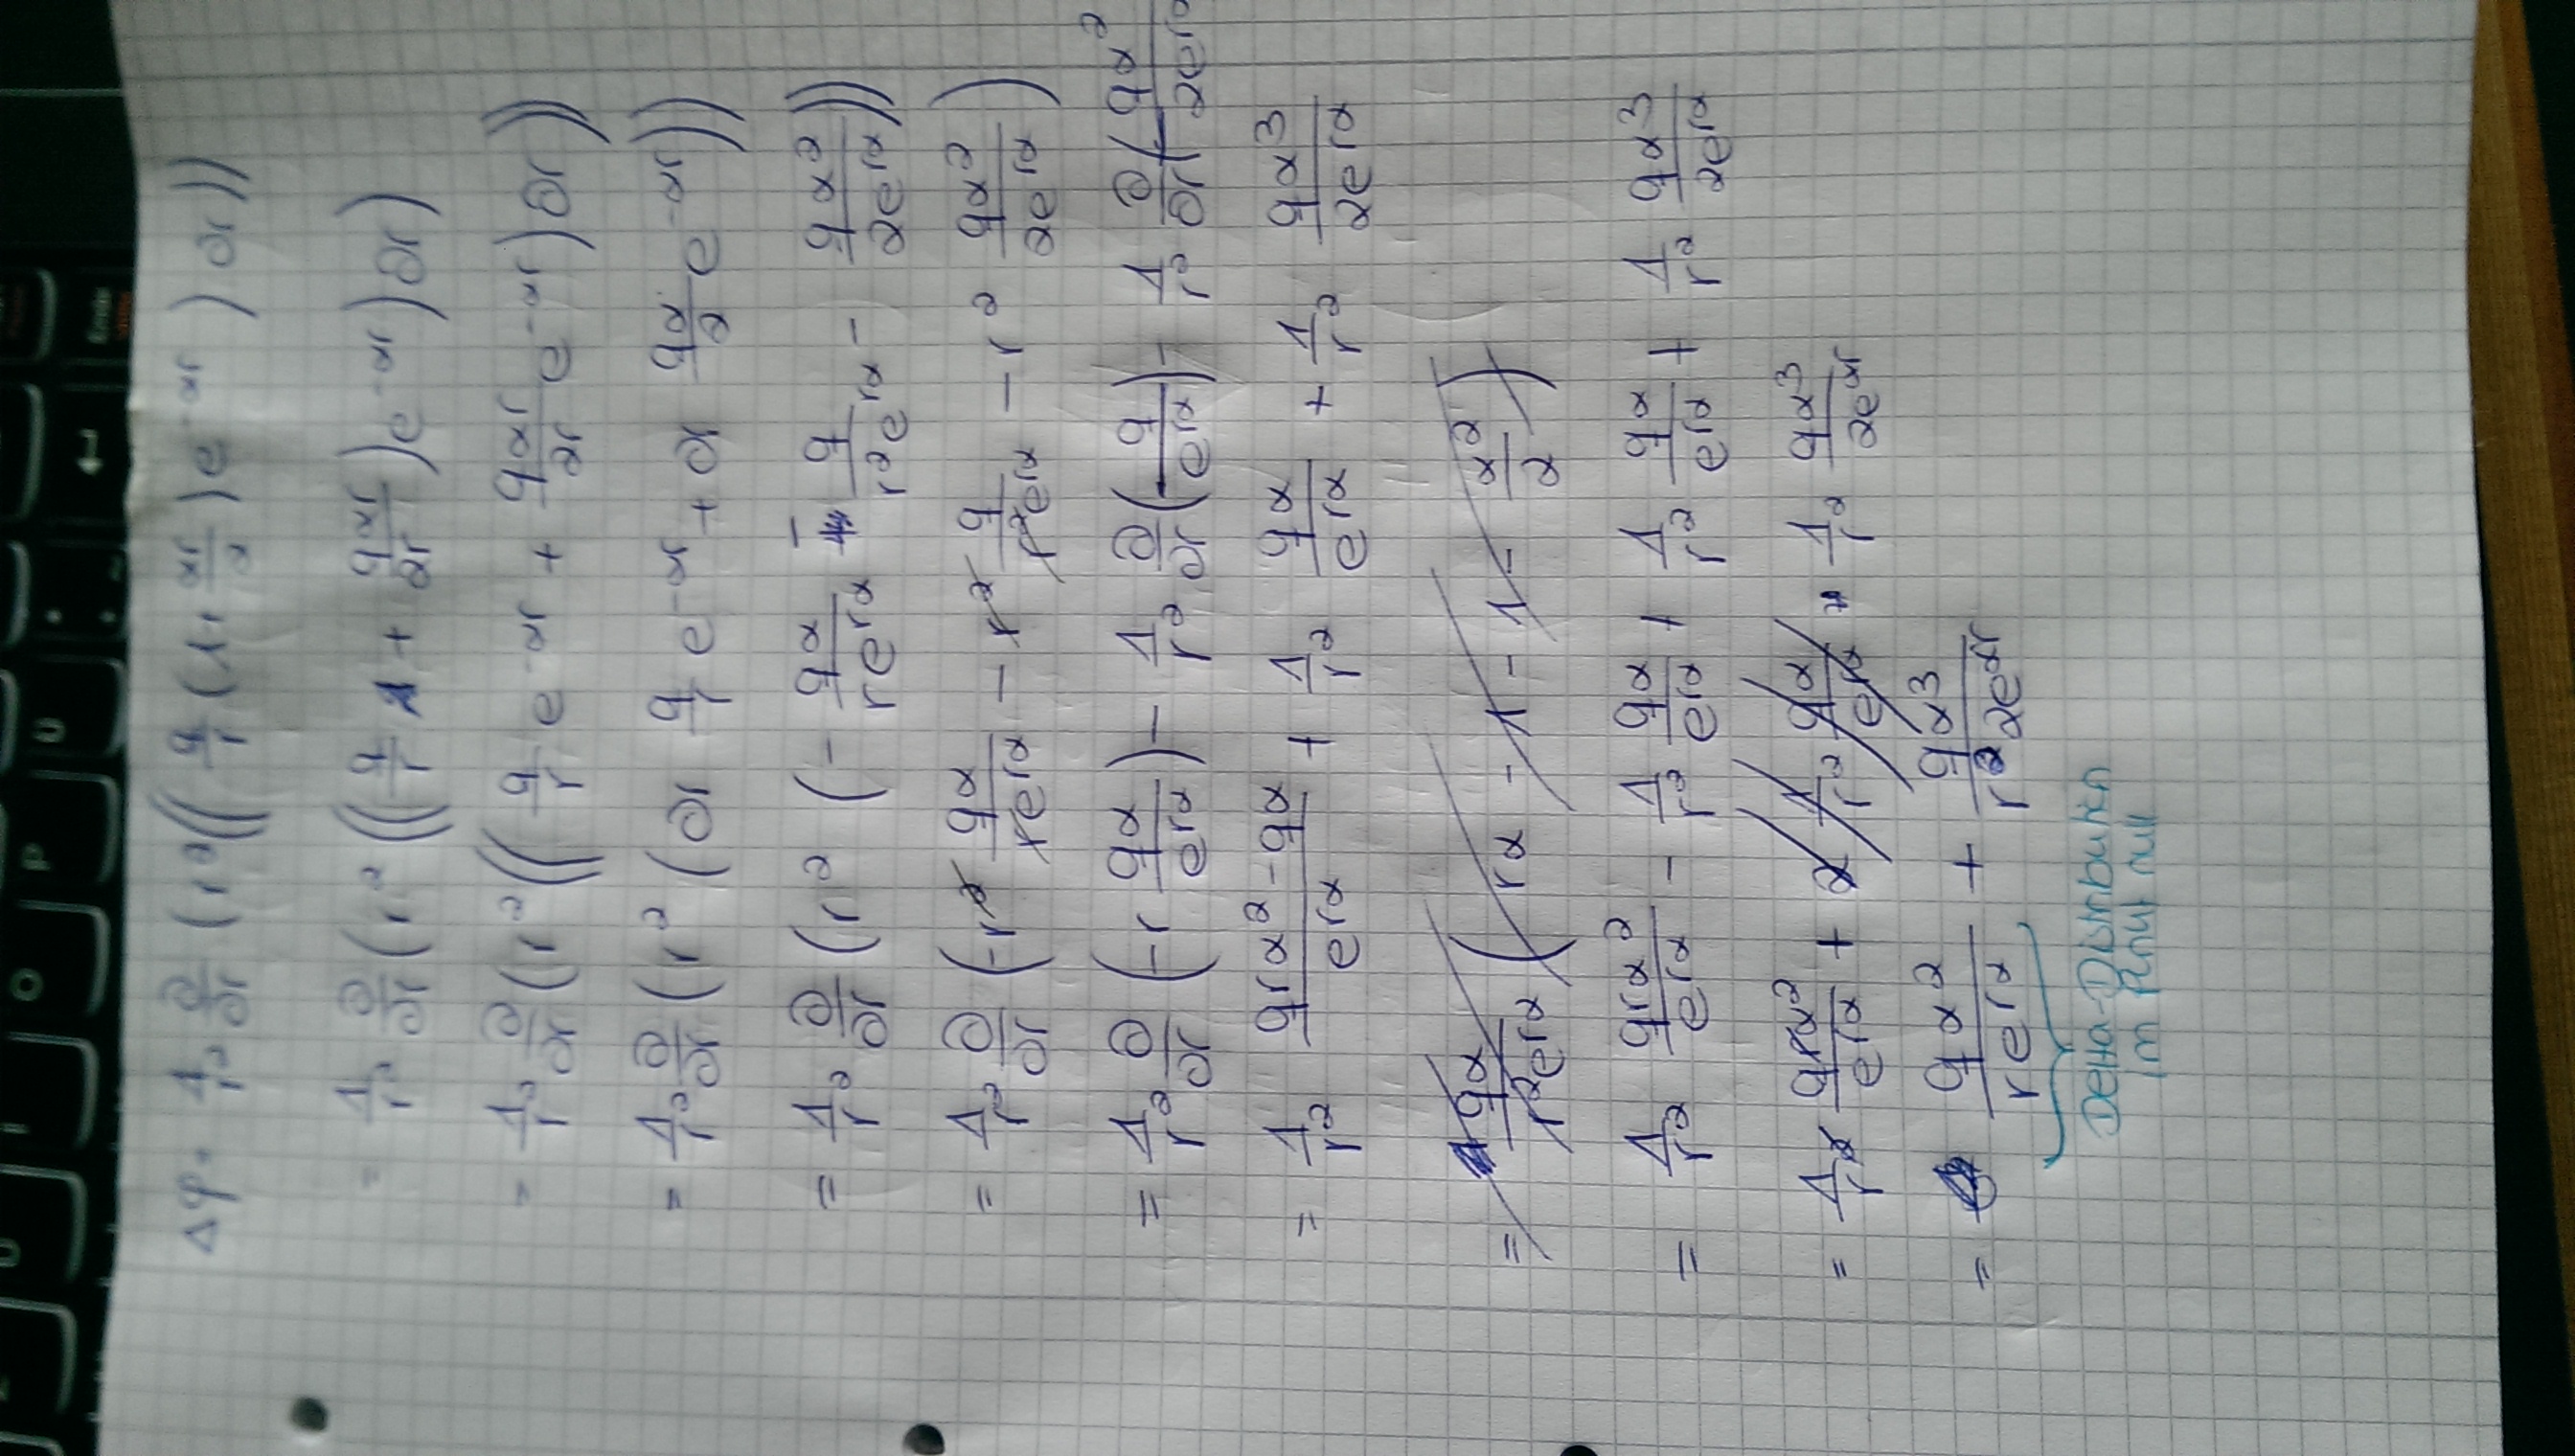 Δφ = 1/r² ∂/∂r (r² ((q/r (1 + αr/2) e^-αr) ∂r))
= 1/r² ∂/∂r (r² ((q/r 1 + qαr/2r) e^-αr) ∂r)
= 1/r² ∂/∂r (r² ((q/r e^-αr + qαr/2r e^-αr) ∂r))
= 1/r² ∂/∂r (r² (∂r q/r e^-αr + ∂r qα/2 e^-αr))
= 1/r² ∂/∂r (r² (- qα/re^rα - q/r²e^rα - qα²/2e^rα))
= 1/r² ∂/∂r (-r² qα/re^rα - r² q/r²e^rα - r² qα²/2e^rα)
= 1/r² ∂/∂r (-r qα/e^rα) - 1/r² ∂/∂r (q/e^rα) - 1/r² ∂/∂r (qα²/2e^rα
= 1/r² qrα²-qα/e^rα + 1/r² qα/e^rα + 1/r² qα³/2e^rα
= qα/r²e^rα (rα - 1 - 1 - α²/2)
= 1/r² qrα²/e^rα - 1/r² qα/e^rα + 1/r² qα/e^rα + 1/r² qα³/2e^rα
= 1/r² qrα²/e^rα + 2 1/r² qα/e^rα + 1/r² qα³/2e^αr
= qα²/re^rα + qα³/r²2e^αr
Delta-Distribution
im Punkt null